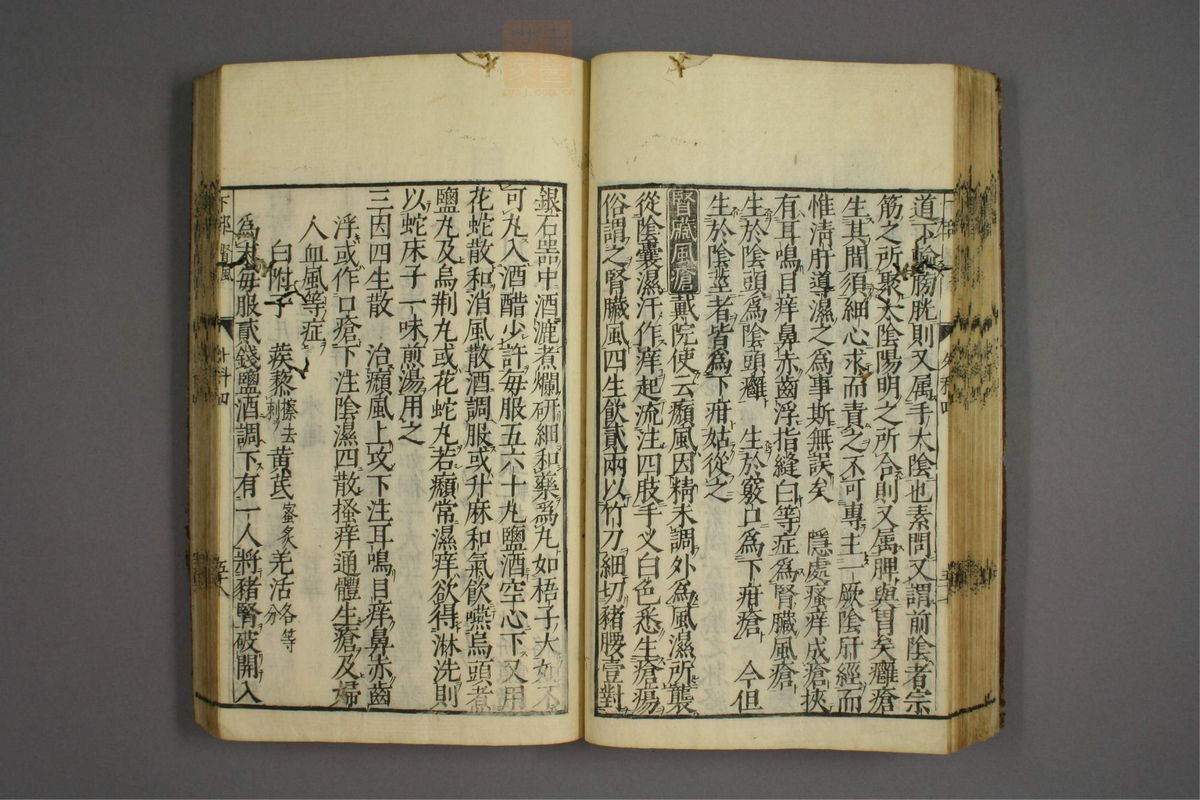 道下膀胱則又属手太陰也素問又謂前陰者宗
筋之所聚太陰陽明之所合則又属脾與胃矣癬瘡
生其間須細心求而責之不可專主一厥陰肝經而
惟清肝導濕之為事斯無誤矣　隱處瘙痒成瘡挾
有耳鳴目痒鼻赤齒浮指縫白等症為腎臟風瘡
生於陰頭為陰頭癰　生於竅口為下疳瘡　今但
生於陰莖者皆為下疳姑從之
腎臟風瘡戴院使云癩風因精未調外為風濕所襲
從陰囊濕汗作痒起流注四肢手叉白色悉生瘡瘍
俗謂之腎臟風四生飲貳兩以竹刀細切豬腰壹對
銀石噐中酒漉煮爛研細和藥爲丸如梧子大如不
可丸入酒醋少許毎服五六十丸鹽酒空心下又用
花蛇散和消風散酒調服或升麻和氣飲嚥烏頭煮
鹽丸及烏荆丸或花蛇丸若癩常濕痒欲得淋洗則
以蛇床子一味煎湯用之
三因四生散　治癩風上攻下注耳鳴目痒鼻赤齒
浮或作口瘡下注陰濕四散搔痒通體生瘡及婦
人血風等症
白附子　蒺藜搽去刺　黄芪蜜炙　羌活各等分
爲末毎服貳錢鹽酒調下有一人將豬腎破開入
下部　腎風　外科四　五十八